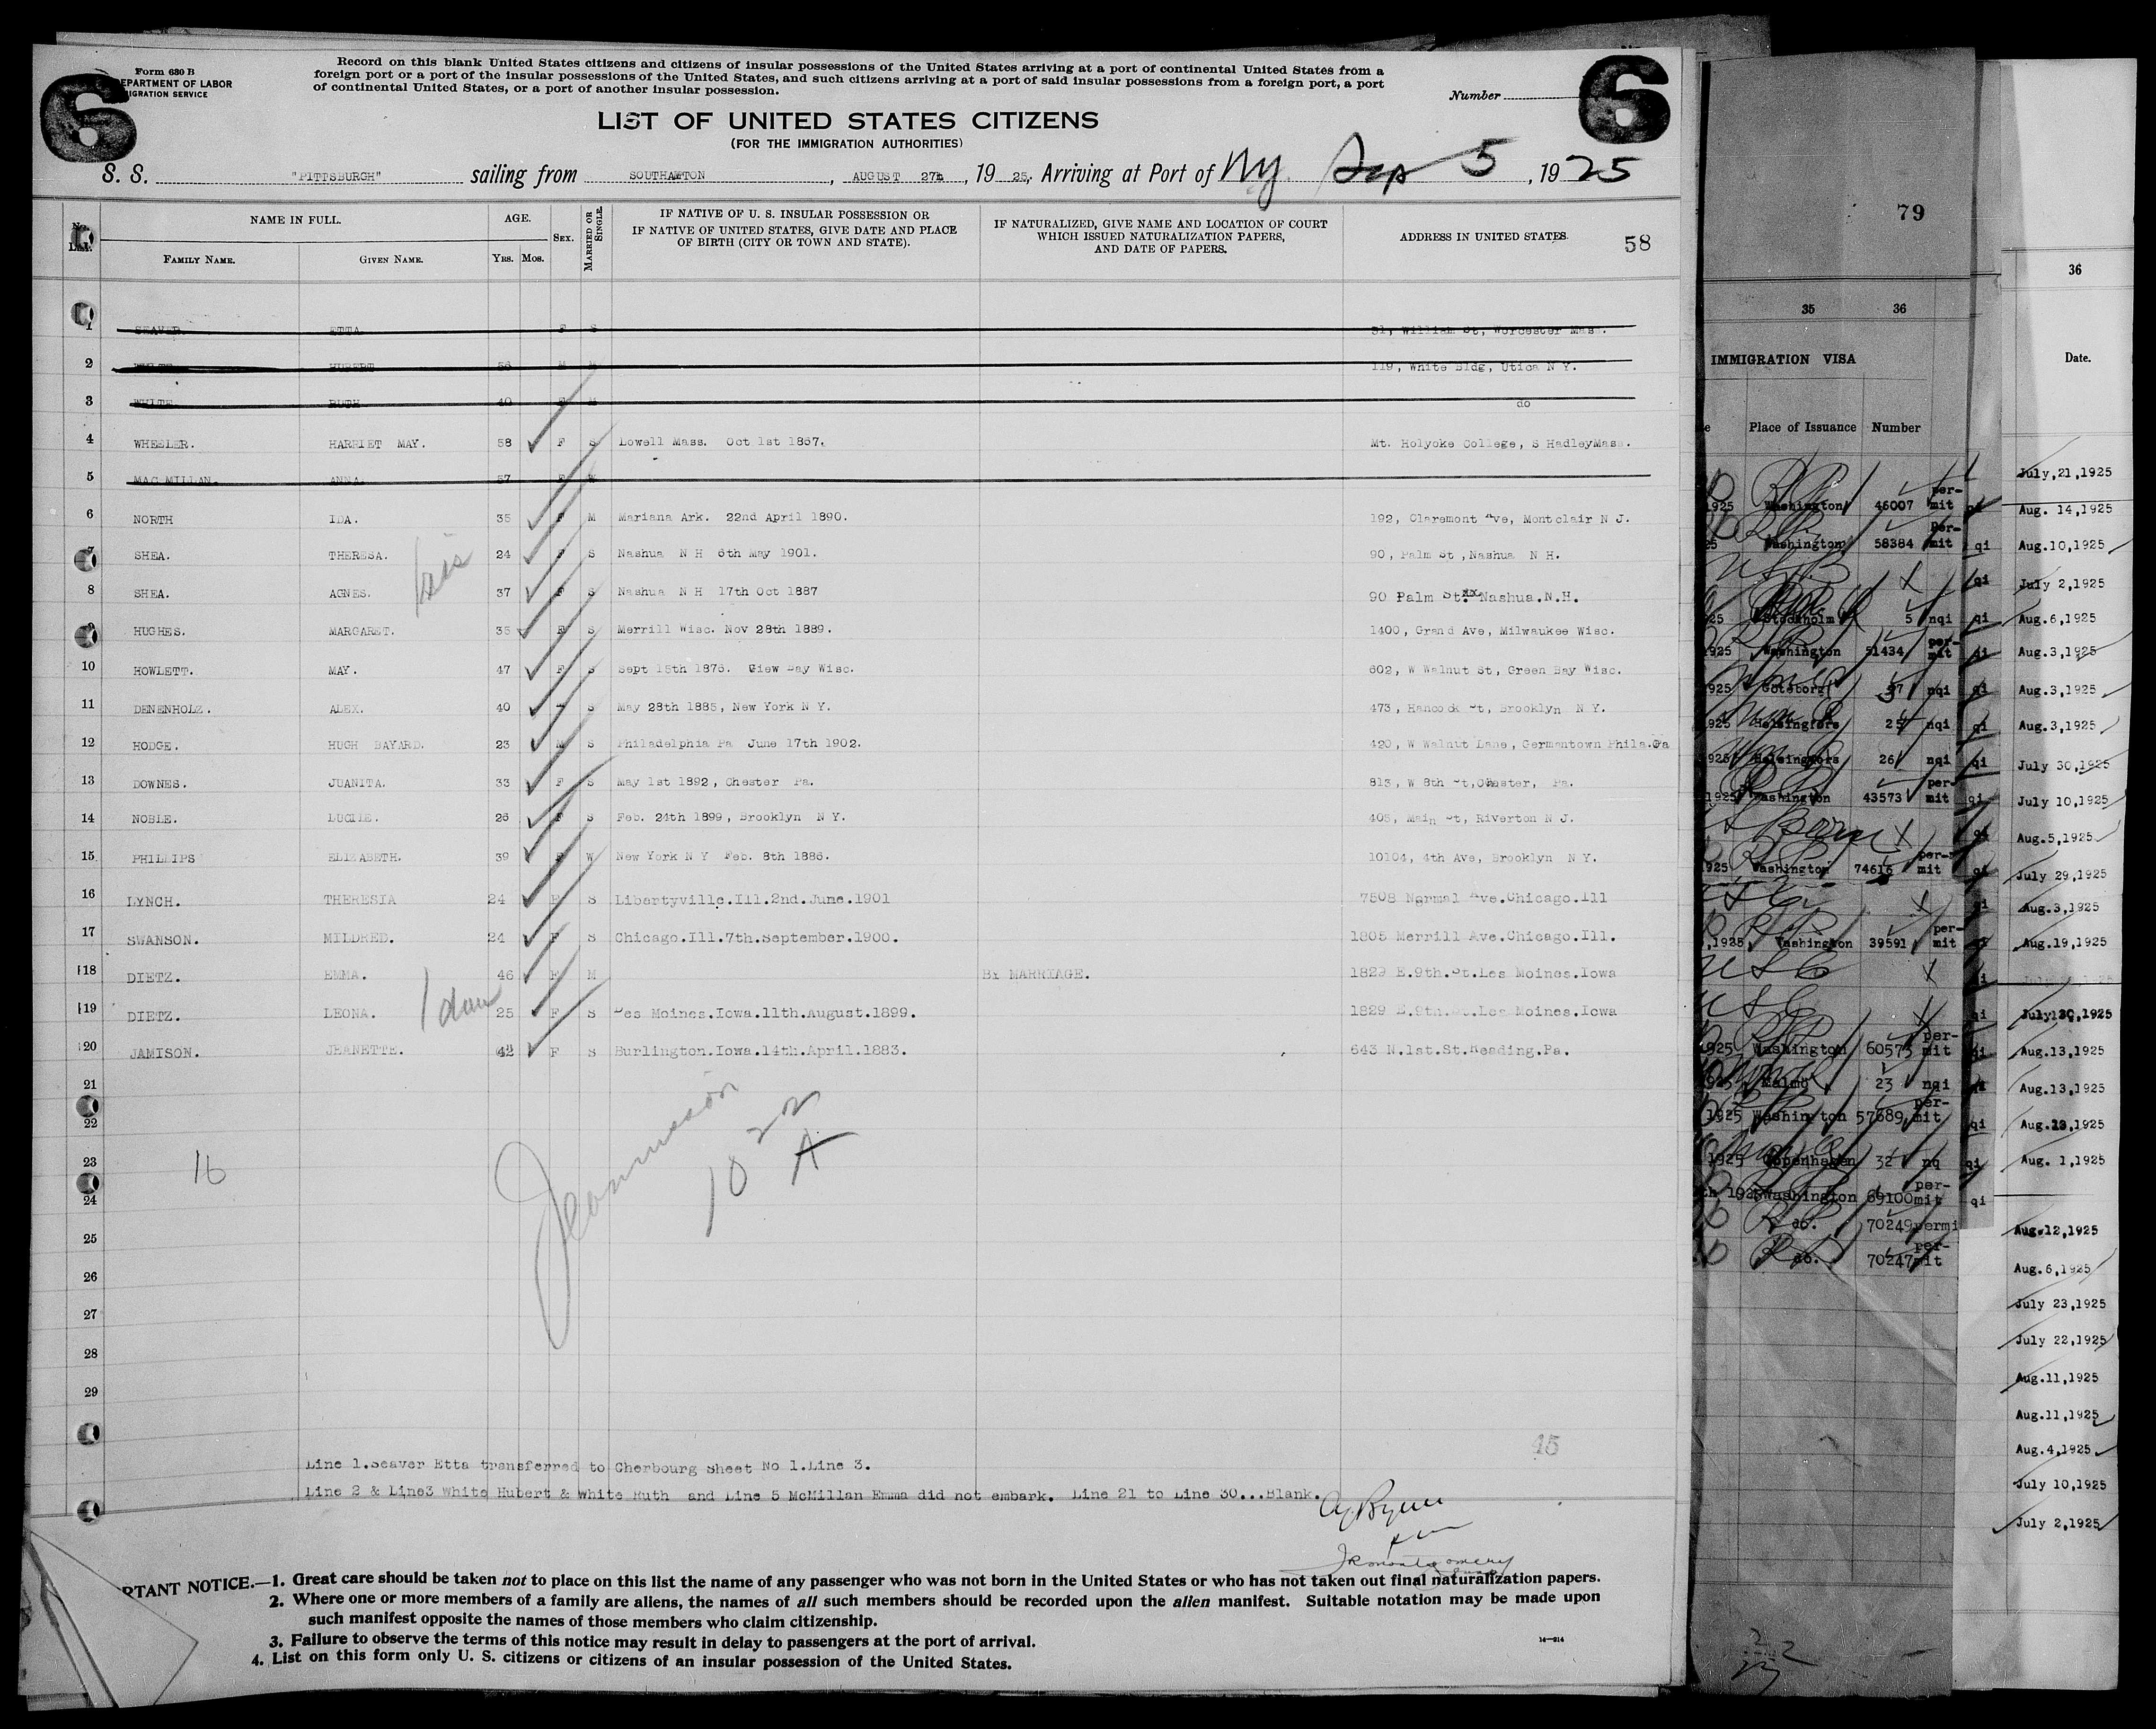 6
6
Form 680 B
EPARTMENT OF LABOR
IGRATION SERVICE
Record on this blank United States citizens and citizens of insular possessions of the United States arriving at a port of continental United States from a
foreign port or a port of the insular possessions of the United States, and such citizens arriving at a port of said insular possessions from a foreign port, a port
of continental United States, or a port of another insular possession.
Number
LIST OF UNITED STATES CITIZENS
(FOR THE IMMIGRATION AUTHORITIES)
S. S. "PITTSBURGH" sailing from SOUTHAMTON, AUGUST 27th, 19 25, Arriving at Port of Ny Sep 5, 19 25
No. List. NAME IN FULL. AGE. SEX. MARRIED OR SINGLE. IF NATIVE OF U. S. INSULAR POSSESSION OR IF NATIVE OF UNITED STATES, GIVE DATE AND PLACE OF BIRTH (CITY OR TOWN AND STATE). IF NATURALIZED, GIVE NAME AND LOCATION OF COURT WHICH ISSUED NATURALIZATION PAPERS, AND DATE OF PAPERS. ADDRESS IN UNITED STATES. 58
FAMILY NAME. GIVEN NAME. YRS. MOS.
1 SEAVER. ETTA F S 31, William St, Worcester Mass.
2 WHITE HUBERT 56 M M 119, White Bldg, Utica N Y.
3 WHITE RUTH 40 F M do
4 WHEELER. HARRIET MAY. 58 F S Lowell Mass. Oct 1st 1867. Mt. Holyoke College, S HadleyMass.
5 MAC MILLAN. ANNA. 57 F W
6 NORTH IDA. 35 F M Mariana Ark. 22nd April 1890. 192, Claremont Ave, Montclair N J.
7 SHEA. THERESA. 24 F S Nashua N H 6th May 1901. 90, Palm St, Nashua N H.
sis
8 SHEA. AGNES. 37 F S Nashua N H 17th Oct 1887 90 Palm St. Nashua.N.H.
9 HUGHES. MARGARET. 35 F S Merrill Wisc. Nov 28th 1889. 1400, Grand Ave, Milwaukee Wisc.
10 HOWLETT. MAY. 47 F S Sept 15th 1876. Giew Bay Wisc. 602, W Walnut St, Green Bay Wisc.
11 DENENHOLZ. ALEX. 40 S May 28th 1885, New York N Y. 473, Hancock St, Brooklyn N Y.
12 HODGE. HUGH BAYARD. 23 M S Philadelphia Pa June 17th 1902. 420, W Walnut Lane, Germantown Phila.Pa
13 DOWNES. JUANITA. 33 F S May 1st 1892, Chester Pa. 813, W 8th St,Chester, Pa.
14 NOBLE. LUCILE. 26 F S Feb. 24th 1899, Brooklyn N Y. 405, Main St, Riverton N J.
15 PHILLIPS ELIZABETH. 39 F W New York N Y Feb. 8th 1886. 10104, 4th Ave, Brooklyn N Y.
16 LYNCH. THERESIA 24 F S Libertyville.Ill.2nd.June.1901 7508 Normal Ave.Chicago.Ill
17 SWANSON. MILDRED. 24 F S Chicago.Ill.7th.September.1900. 1805 Merrill Ave.Chicago.Ill.
18 DIETZ. EMMA. 46 F M BY MARRIAGE. 1829 E.9th.St.Les Moines.Iowa
19 DIETZ. LEONA. 25 F S Des Moines.Iowa.11th.August.1899. 1829 E.9th.St.Les Moines.Iowa
dau
20 JAMISON. JEANETTE. 42 F S Burlington.Iowa.14th.April.1883. 643 N.1st.St.Reading.Pa.
21
22
23
24
25
26
27
28
29
16
10 22
A
45
Line 1.Seaver Etta transferred to Cherbourg Sheet No 1.Line 3.
Line 2 & Line3 White Hubert & White Ruth and Line 5 McMillan Emma did not embark. Line 21 to Line 30...Blank.
RTANT NOTICE.—1. Great care should be taken not to place on this list the name of any passenger who was not born in the United States or who has not taken out final naturalization papers.
2. Where one or more members of a family are aliens, the names of all such members should be recorded upon the alien manifest. Suitable notation may be made upon
such manifest opposite the names of those members who claim citizenship.
3. Failure to observe the terms of this notice may result in delay to passengers at the port of arrival.
4. List on this form only U. S. citizens or citizens of an insular possession of the United States.
14—914
79
35 36
IMMIGRATION VISA
Place of Issuance Number
1925 Washington 46007 per-mit
25 Washington 58384 Per-mit qi
qi
25 Stockholm 5 nqi qi
1925 Washington 51434 per-mit qi
1925 Goteborg 37 nqi qi
1925 Helsingfors 25 nqi qi
1925 Helsingfors 26 nqi qi
1925 Washington 43573 per-mit qi
qi
1925 Washington 74616 per-mit qi
qi
,1925, Washington 39591 per-mit
qi
qi
1925 Washington 60573 per-mit qi
925 Malmo 23 nqi
1925 Washington 57689 per-mit qi
1925 Copenhagen 32 nq qi
th 1925 Washington 69100 per-mit qi
do. 70249 permi
do. 70247 per-mit
36
Date.
July,21,1925
Aug. 14,1925
Aug.10,1925
July 2,1925
Aug.6,1925
Aug.3,1925
Aug.3,1925
Aug.3,1925
July 30,1925
July 10,1925
Aug.5,1925
July 29,1925
Aug.3,1925
Aug.19,1925
July 30,1925
Aug.13,1925
Aug.13,1925
Aug. 1,1925
Aug.12,1925
Aug.6,1925
July 23,1925
July 22,1925
Aug.11,1925
Aug.11,1925
Aug.4,1925
July 10,1925
July 2,1925